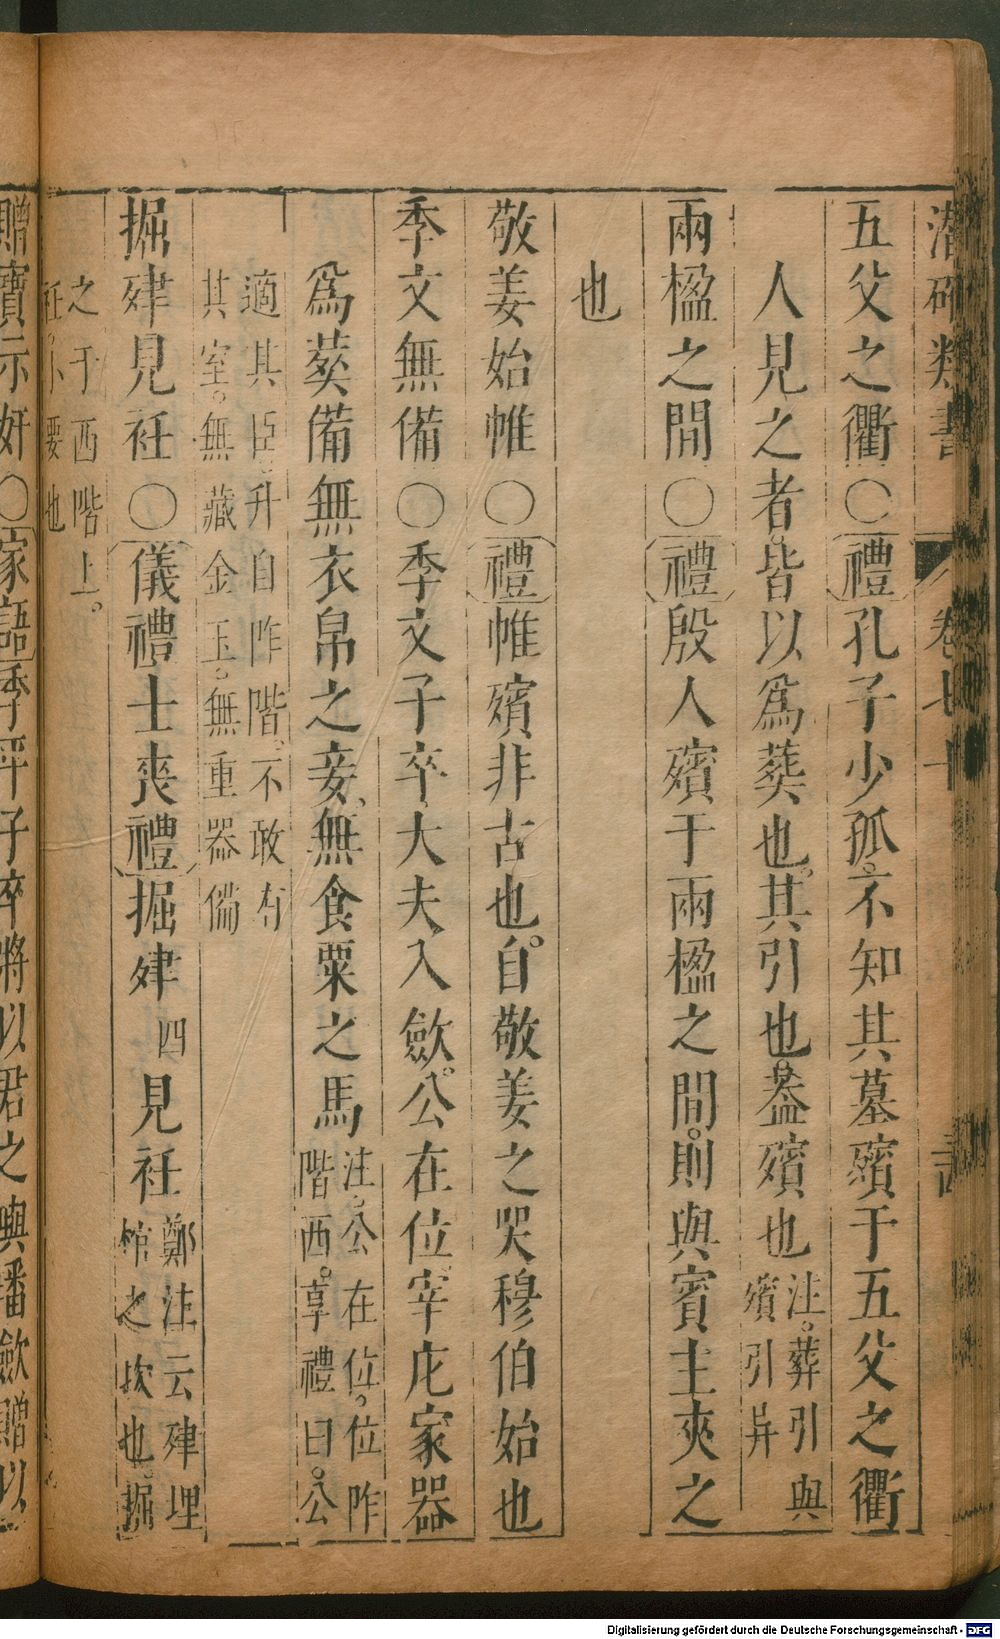 潛確類書 卷七十
五父之衢〇禮孔子少孤。不知其墓殯于五父之衢
人見之者。皆以爲葬也。其引也。葢殯也注。葬引與
殯引异
兩楹之間〇禮殷人殯于兩楹之間。則與賓主夾之
也
敬姜始帷〇禮帷殯非古也。自敬姜之哭穆伯始也
季文無備〇季文子卒、大夫入斂。公在位、宰庀家器
爲葬備無衣帛之妾、無食粟之馬注。公在位。位阼
階西。享禮曰。公
適其臣。升自阼階。不敢有
其室。無藏金玉。無重器俻
掘肂見衽〇儀禮士喪禮掘肂四見衽鄭注云肂埋
棺之坎也。掘
之于西階上。
衽。小要也
贈寶示奸〇家語季平子卒將以君之輿璠斂贈以
Digitalisierung gefördert durch die Deutsche Forschungsgemeinschaft - DFG